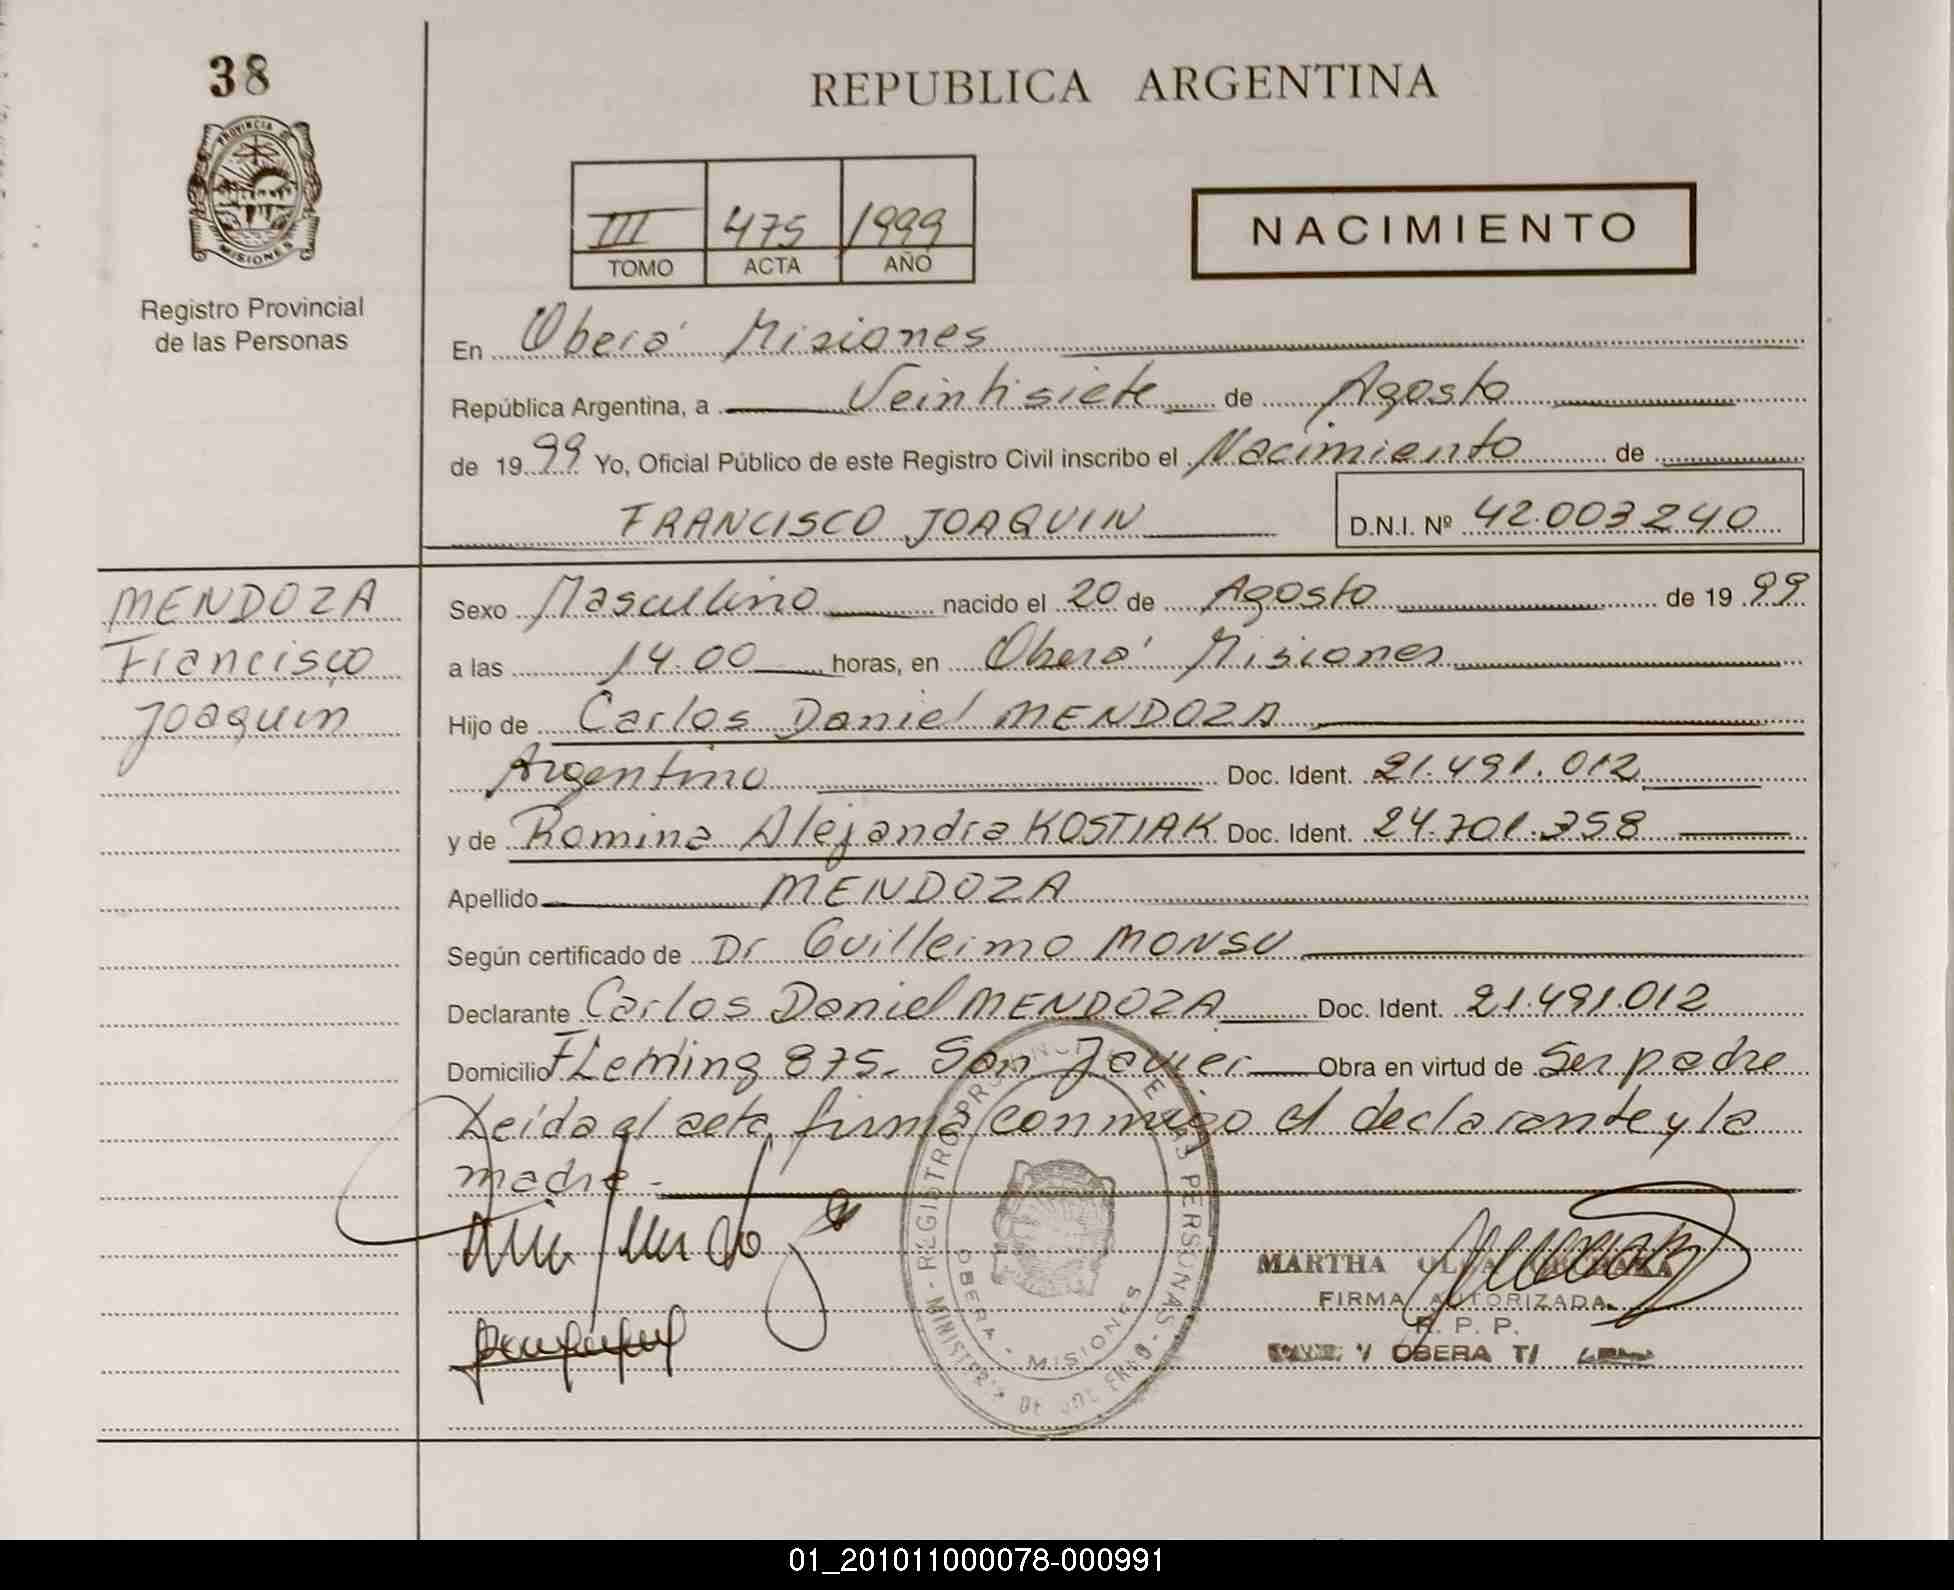 38
PROVINCIA DE
MISIONES
Registro Provincial
de las Personas
REPUBLICA ARGENTINA
III 475 1999
TOMO ACTA AÑO
NACIMIENTO
En Oberá Misiones
República Argentina, a Veintisiete de Agosto
de 1999 Yo, Oficial Público de este Registro Civil inscribo el Nacimiento de
FRANCISCO JOAQUIN D.N.I. Nº 42.003240
MENDOZA
Francisco
Joaquin
Sexo Masculino nacido el 20 de Agosto de 1999
a las 14.00 horas, en Oberá Misiones
Hijo de Carlos Daniel MENDOZA
Argentino Doc. Ident. 21.491.012
y de Romina Alejandra KOSTIAK Doc. Ident. 24.701.358
Apellido MENDOZA
Según certificado de Dr Guillermo MONSU
Declarante Carlos Daniel MENDOZA Doc. Ident. 21.491.012
Domicilio Fleming 875- San Javier Obra en virtud de Ser padre
Leída el acta, firma conmigo el declarante y la
madre-
REGISTRO PROVINCIAL DE LAS PERSONAS
OBERA - MISIONES
MINISTERIO DE GOBIERNO
MARTHA OLGA
FIRMA AUTORIZADA
R. P. P.
OBERA
01_201011000078-000991